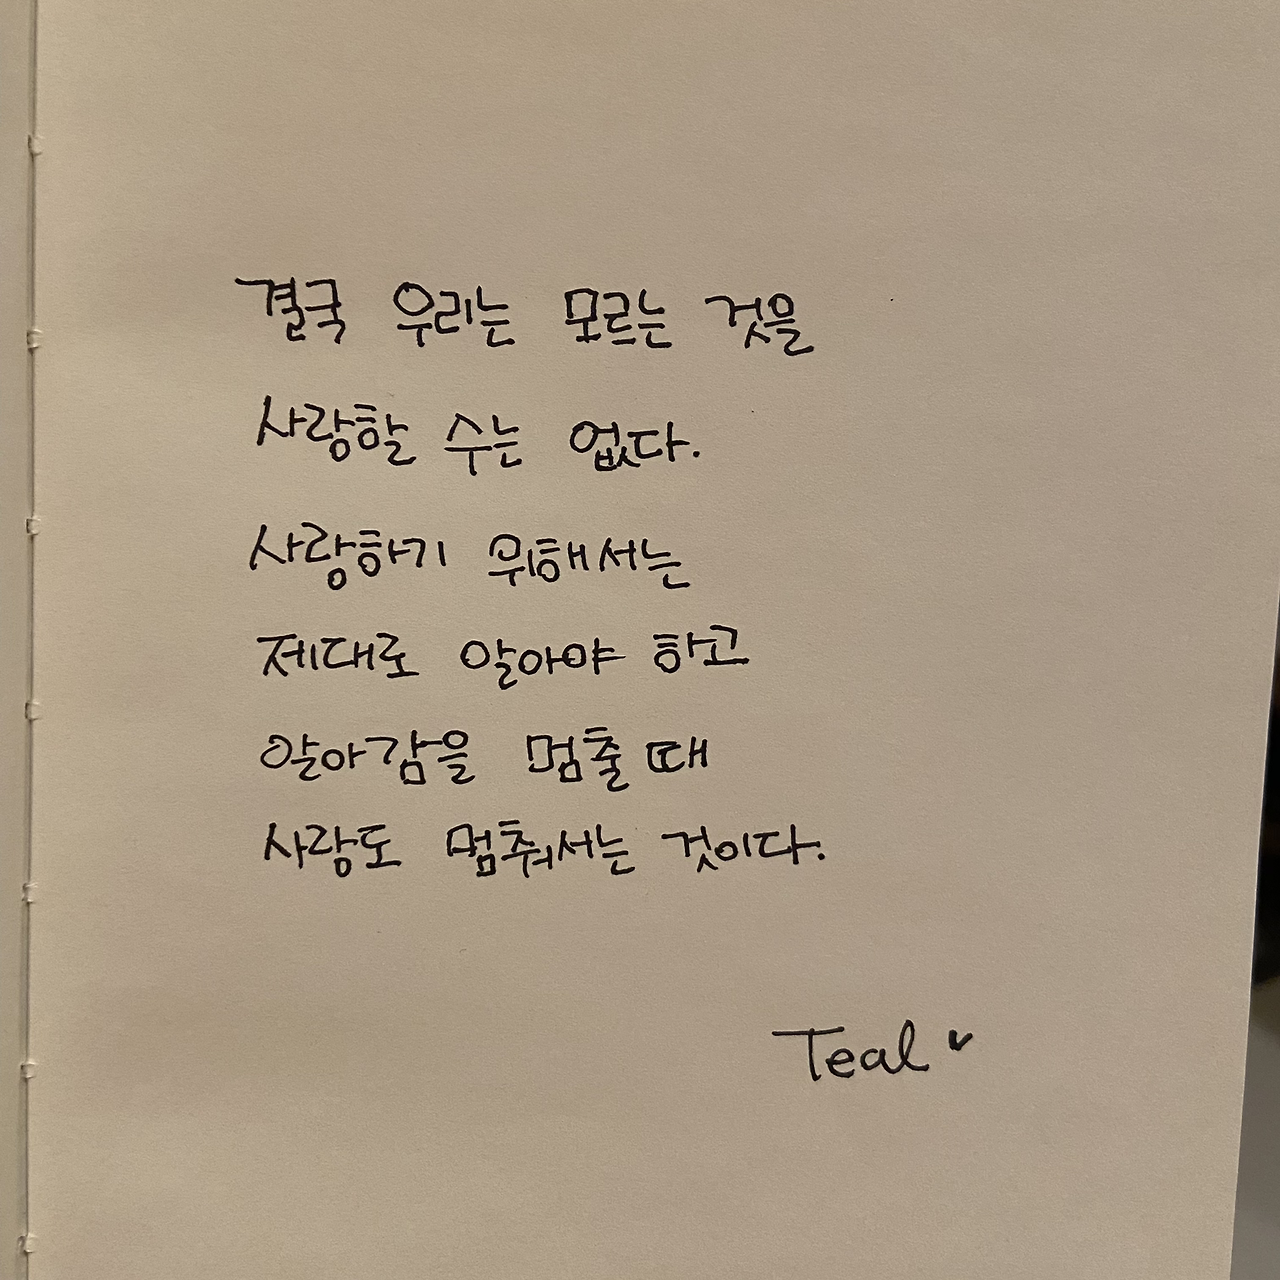 결국 우리는 모르는 것을
사랑할 수는 없다.
사랑하기 위해서는
제대로 알아야 하고
알아감을 멈출 때
사랑도 멈춰서는 것이다.
Teal